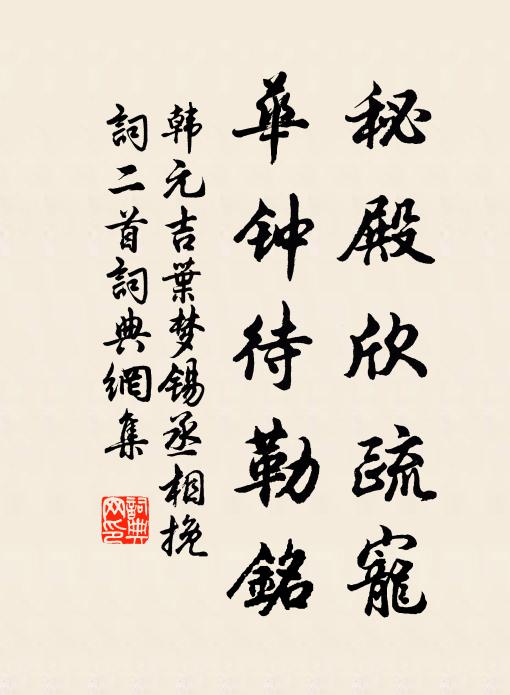 秘殿欣疏寵
華钟待勒銘
韩元吉葉梦锡丞相挽
詞二首詞典網集
詞典網印